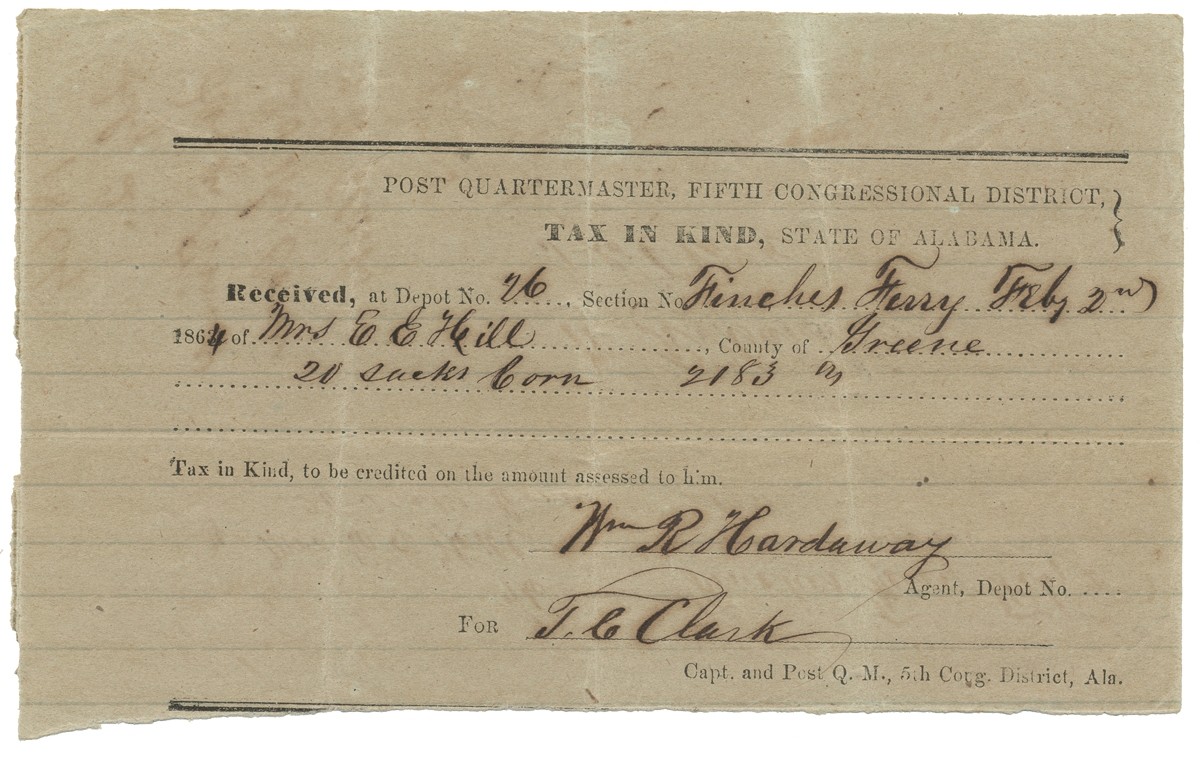 POST QUARTERMASTER, FIFTH CONGRESSIONAL DISTRICT,
TAX IN KIND, STATE OF ALABAMA.
Received, at Depot No. 26, Section No Finches Ferry Feby 2nd
1864 of Mrs E E Hill, County of Greene
20 sacks Corn 2183
Tax in Kind, to be credited on the amount assessed to him.
Wm R Hardaway
Agent, Depot No. ....
FOR T. C Clark
Capt. and Post Q. M., 5th Cong. District, Ala.